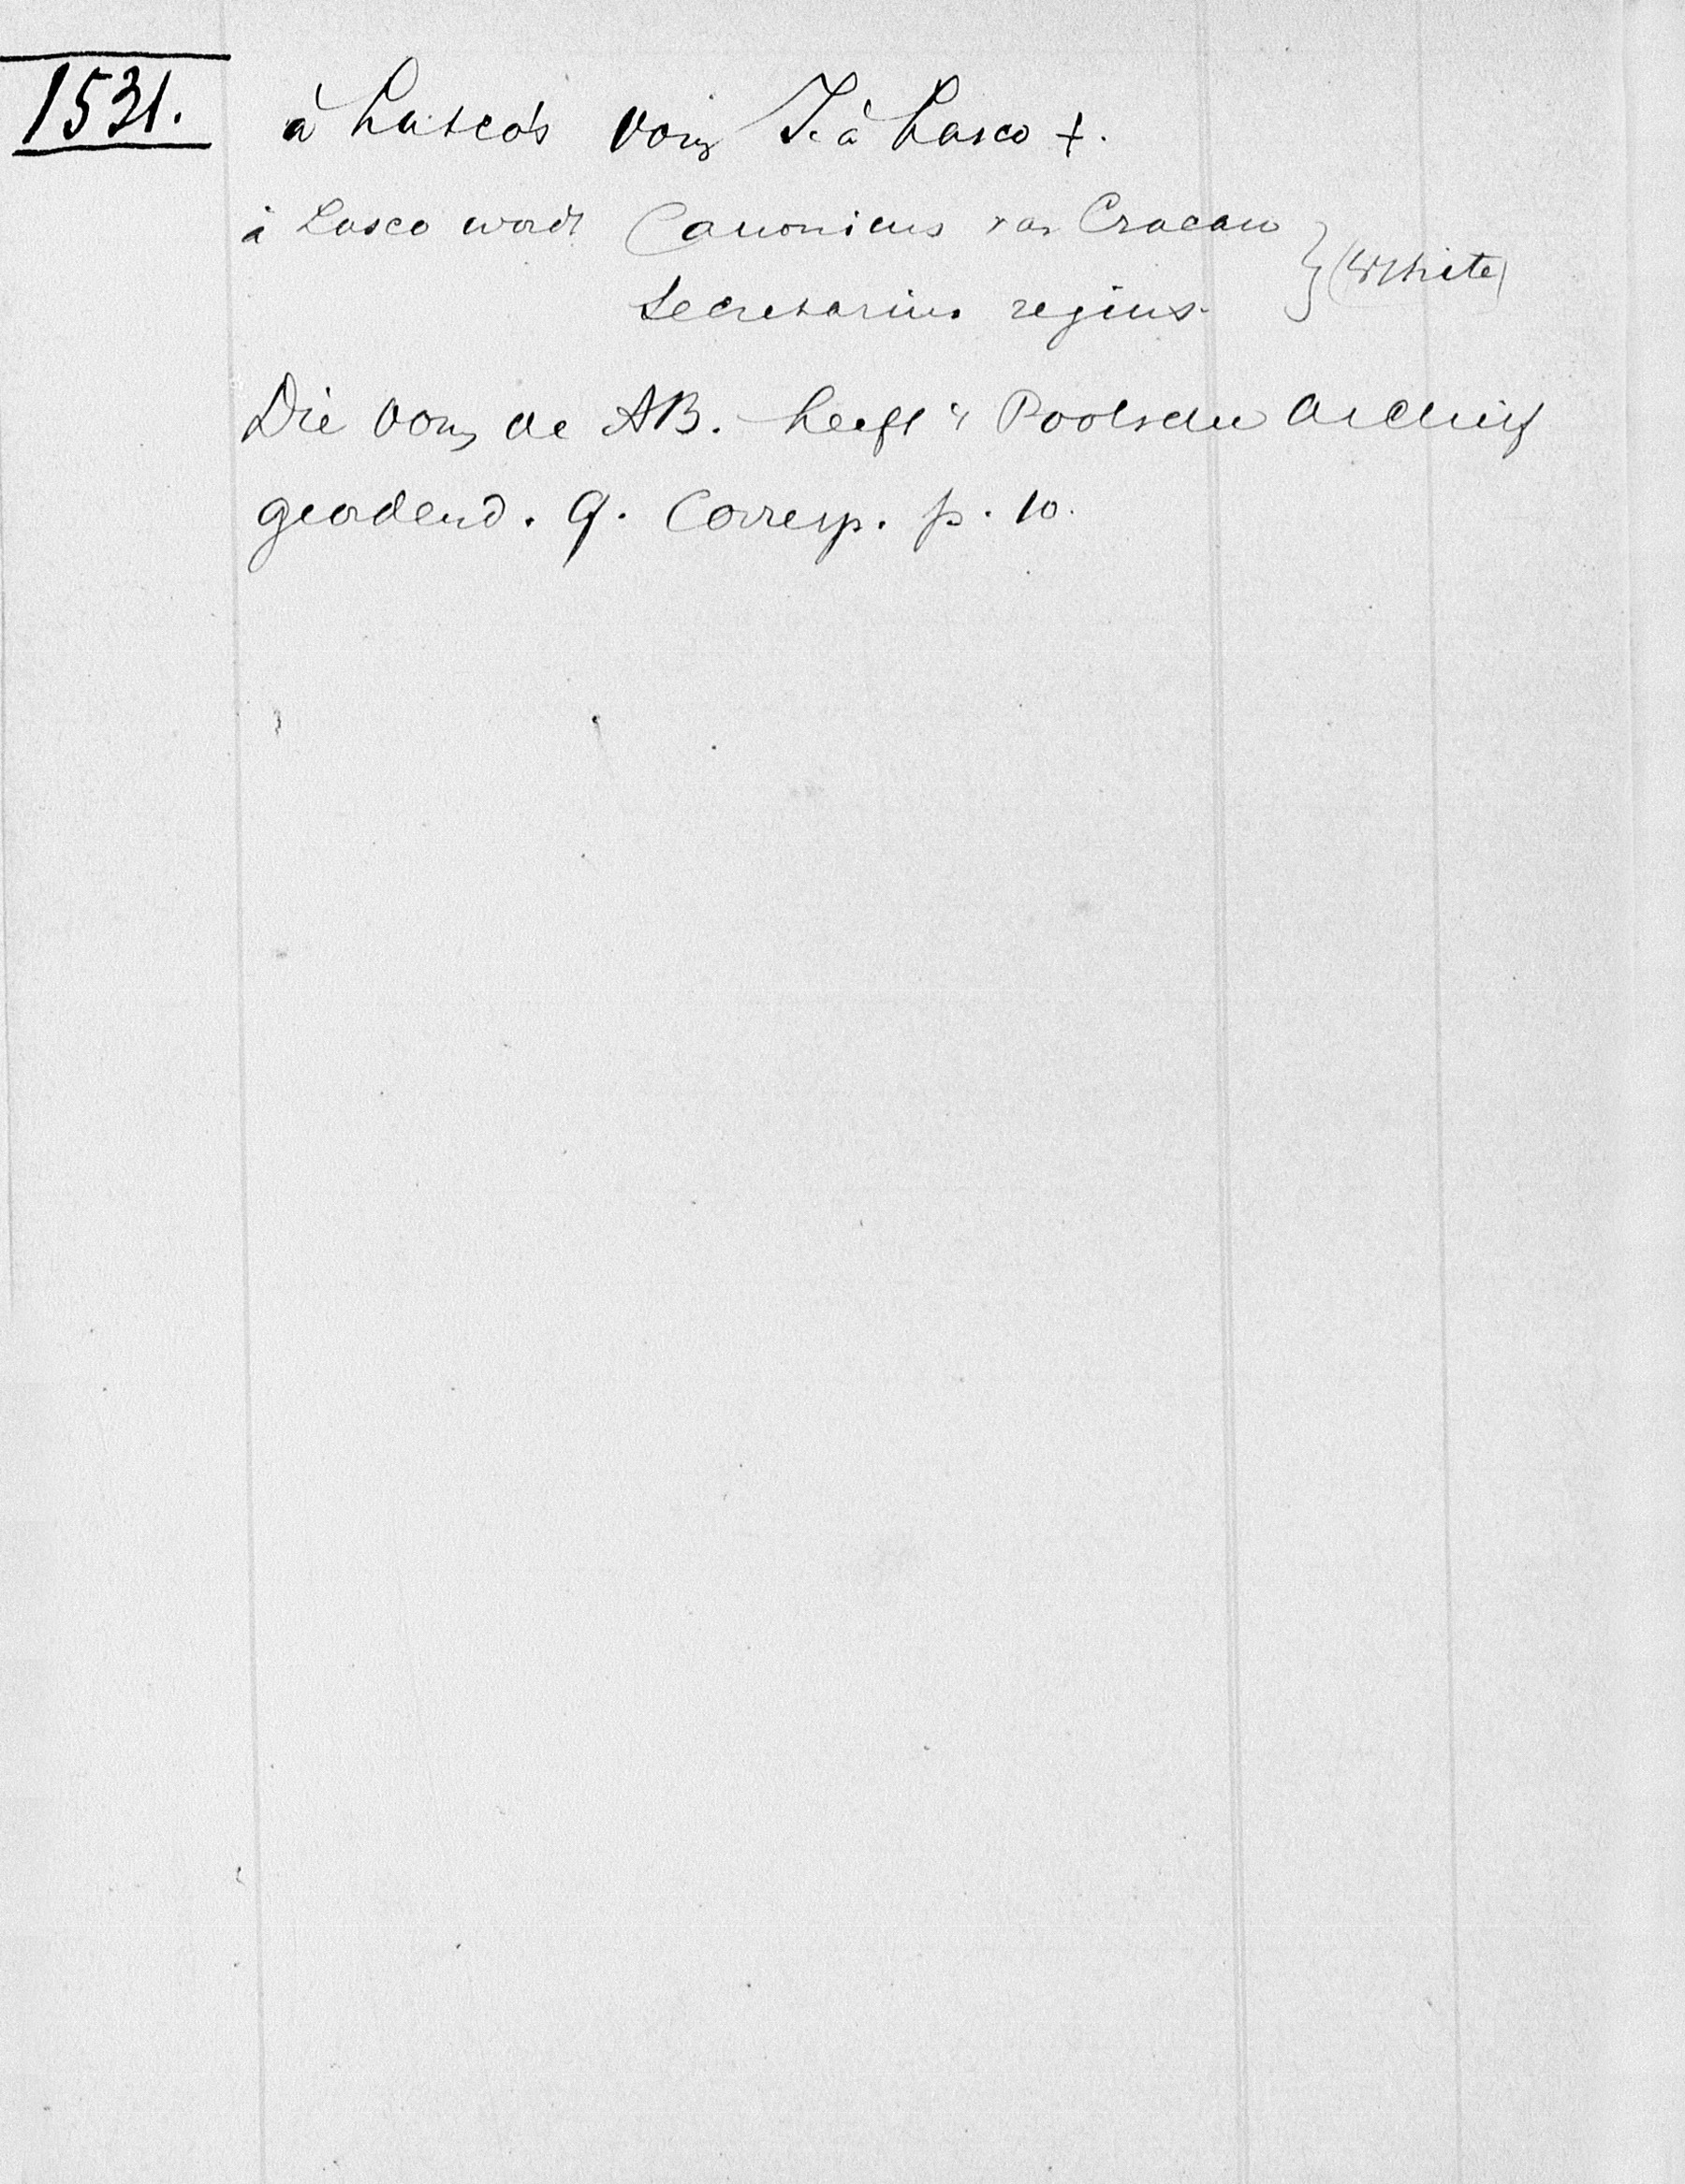 1531. à Lasco's oom J. à Lasco +.
à Lasco wordt Canonicus van Cracau
Secretarius regius. } (White)
Die oom, de AB. heeft 't Poolsche Archief
geordend. G. Corresp. p. 10.